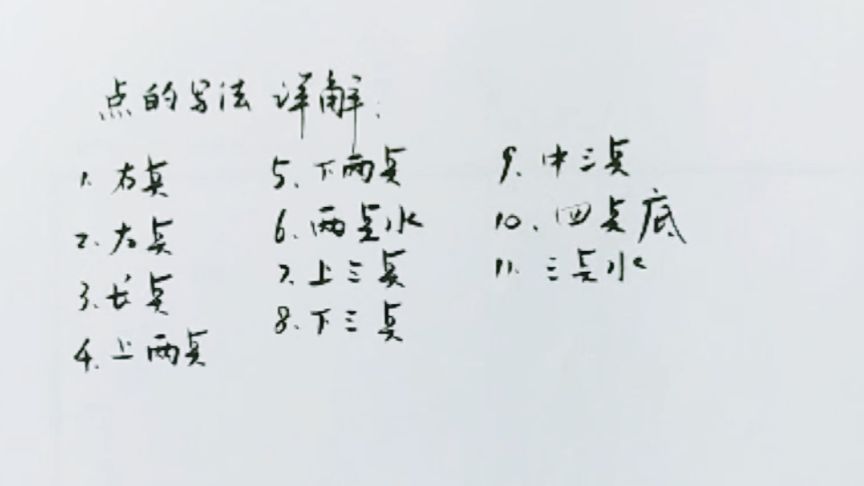 点的写法 详解:
1. 右点
2. 左点
3. 长点
4. 上两点
5. 下两点
6. 两点水
7. 上三点
8. 下三点
9. 中三点
10. 四点底
11. 三点水